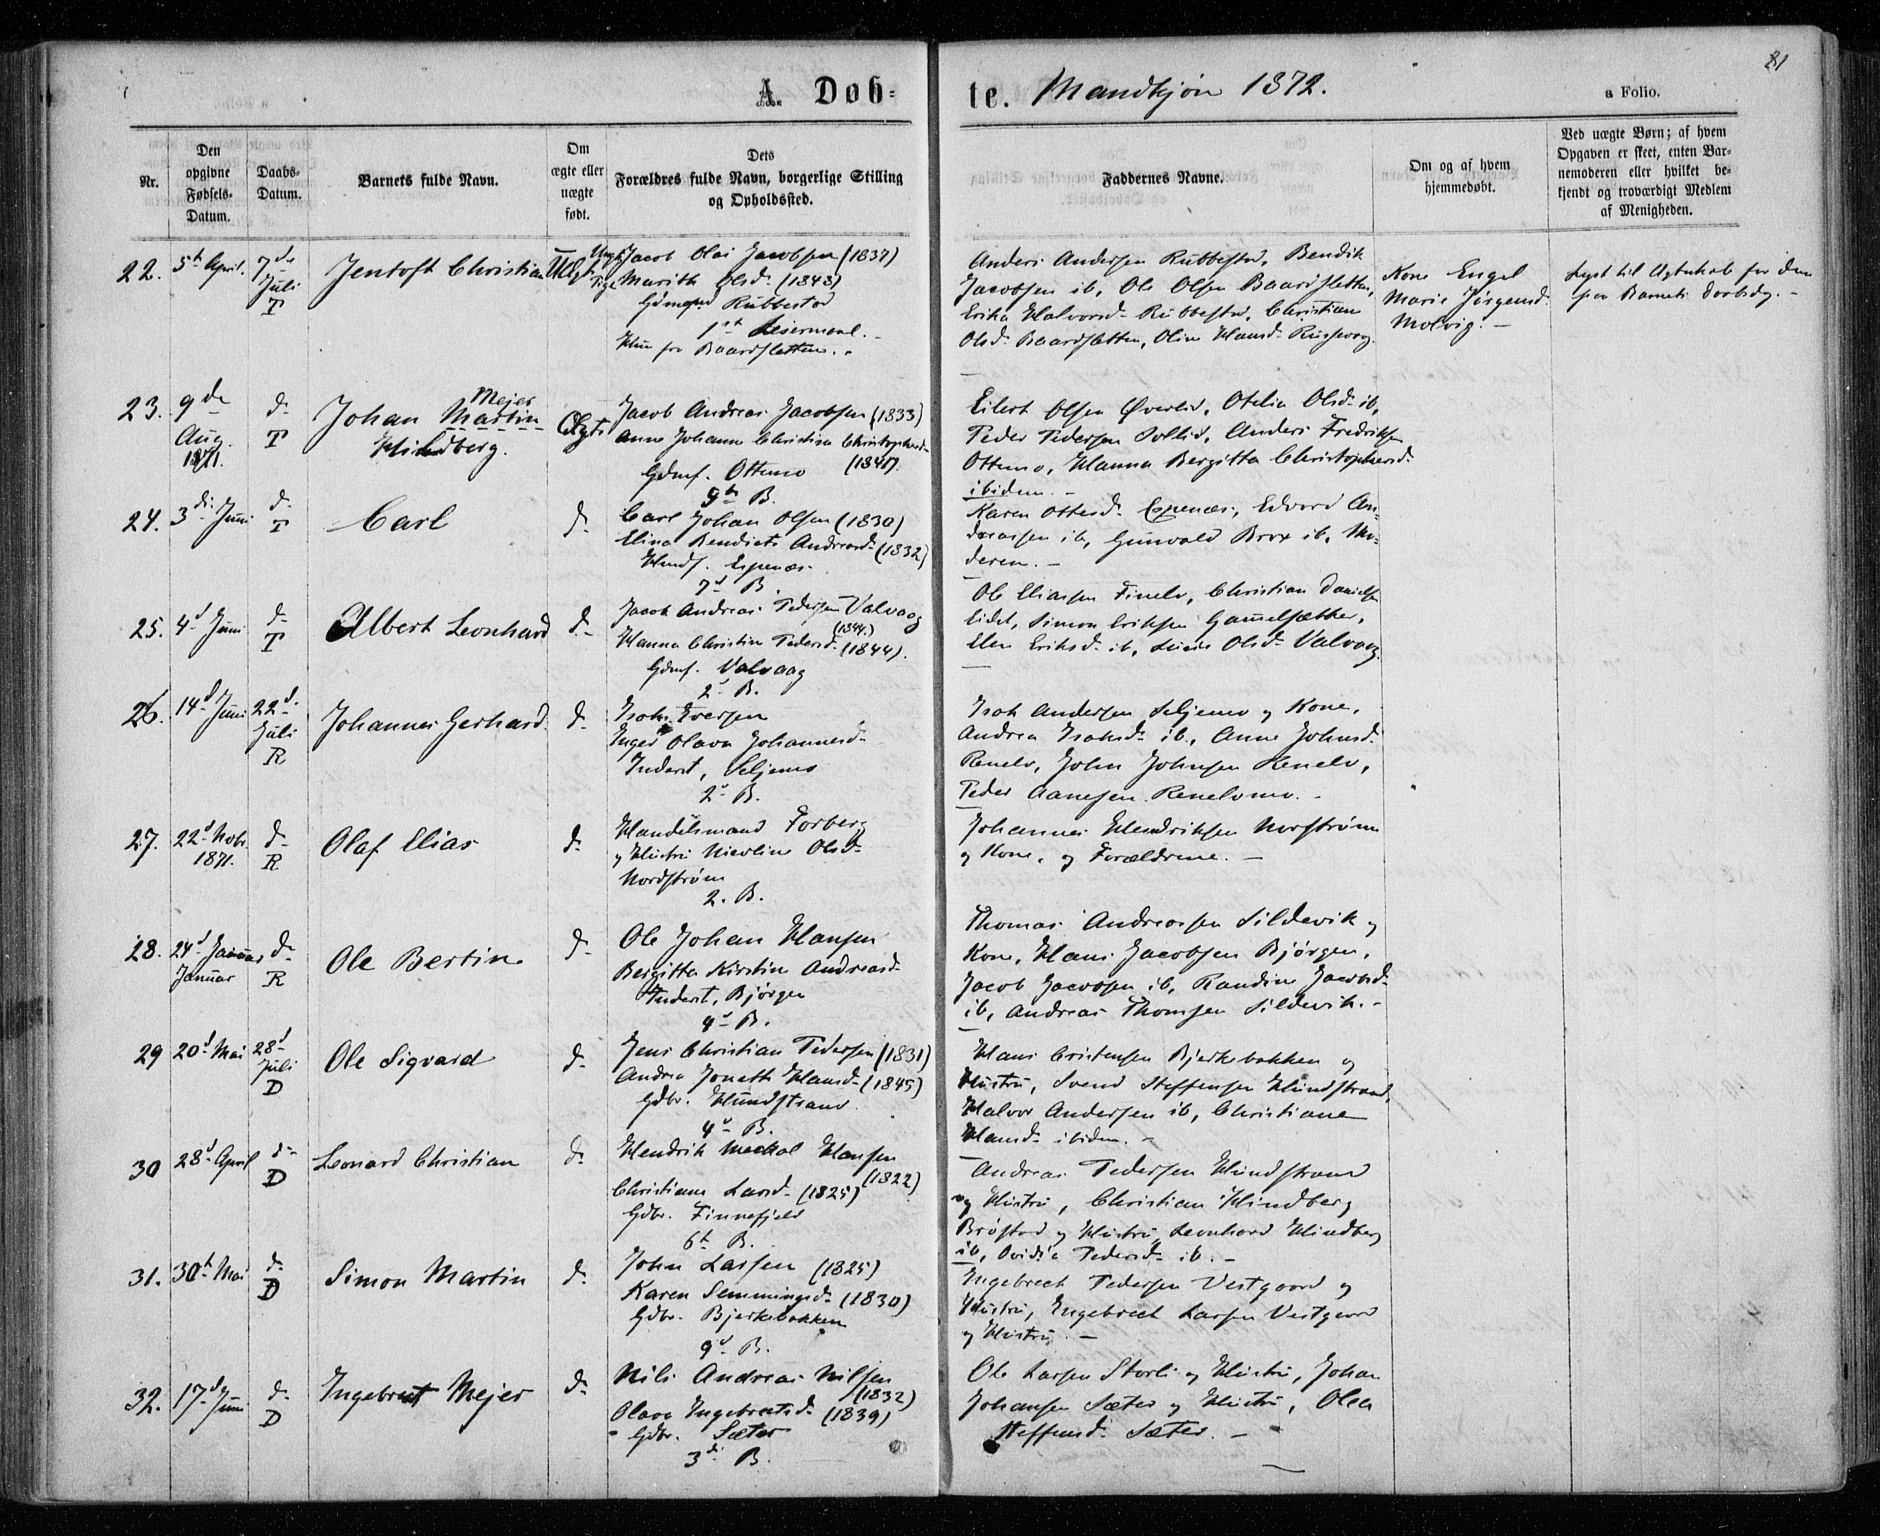 81
A. Døb-
te. Mandkjøn 1872.
a Folio.
Nr.
Den
opgivne
Fødsels-
Datum.
Daabs-
Datum.
Barnets fulde Navn.
Om
ægte eller
uægte
født.
Dets
Forældres fulde Navn, borgerlige Stilling
og Opholdssted.
Faddernes Navne.
Om og af hvem
hjemmedøbt.
Ved uægte Børn; af hvem
Opgaven er skeet, enten Bar-
nemoderen eller hvilket be-
kjendt og troværdigt Medlem
af Menigheden.
22.
5te April.
7de
Juli
T
Jentoft Christian
Uægte
Ungk. Jacob Olai Jacobsen (1837)
Pige Marith Olsd. (1848)
Gdmand Rubbestad
1ste Leiermaal.
Hun fra Baardsletten.
Anders Andersen Rubbestad, Bendik
Jacobsen ib, Ole Olsen Baardsletten,
Erika Halvorsd. Rubbestad, Christian
Olsd. Baardsletten, Oline Hansd. Russevaag.
Kone Engel
Marie Jørgensd.
Molvig.
Lyst til Ægteskab for dem
paa Barnets Daabsdag.
23.
9de
Aug.
1871.
d.
T
Mejer
Johan Martin
Hindberg.
Ægte
Jacob Andreas Jacobsen (1833)
Anne Johanne Christine Christophersd.
(1841).
Gdmf. Ottemo
9de B.
Eilert Olsen Øverlid, Otelia Olsd. ib,
Peder Pedersen Sollid, Anders Fredriksen
Ottemo, Hanna Bergitta Christophersd.
ibidem.
24.
3die Juni
d.
T
Carl
d.
Carl Johan Olsen (1830)
Elina Bendicte Andreasd. (1832)
Husf. Espenæs
7d B.
Karen Ottesd. Espenæs, Edvard An-
dreassen ib, Gunvald Brox ib, Mo-
deren.
25.
4d Juni
d.
T
Albert Leonhard
d.
Jacob Andreas Pedersen Valvaag
(1844.)
Hanna Christin Pedersd. (1844).
Gdmf. Valvaag
2d B.
Ole Eliassen Finelv, Christian Danielsen
Lidet, Simon Eriksen Gammelsæther,
Elen Eriksd. ib, Olsd. Valvaag.
26.
14d Juni
22d
Juli
R
Johannes Gerhard
d.
Isak Iversen
Inger Olava Johannesd.
Inderst, Seljemo
2d B.
Isak Andersen Seljemo og Kone,
Andrea Isaksd. ib., Anne Johnsd.
Renelv, John Johnsen Renelv,
Peder Aanesen Renelvmo.
27.
22d Nobr.
1871.
d.
R
Olaf Elias
d.
Handelsmand Forberg
og Hustru Nicoline Olsd.
Nordstrøm
2. B.
Johannes Hendriksen Norstrøm
og Kone, og Forældrene.
28.
24d Januar
Januar
d.
R
Ole Bertin
d.
Ole Johan Hansen
Bergitta Kirstine Andreasd.
Inderst, Bjørgen
4d B.
Thomas Andreassen Sildevik og
Kone, Hans Jacobsen Bjørgen,
Jacob Jacobsen ib, Randine Jacobsd.
ib, Andreas Thomsen Sildevik.
29
20d Mai
28d
Juli
D
Ole Sigvard
d.
Jens Christian Pedersen (1831)
Andrea Joneth Hansd. (1845)
Gdbr. Hundstrand
4d B.
Hans Cristensen Bjerkebakken og
Hustru, Svend Steffensen Hundstrand,
Halvor Andersen ib, Christiane
Hansd. ibidem.
30
28d April
d.
D
Leonard Christian
d.
Hendrik Meckal Hansen
(1822)
Christiane Larsd. (1825)
Gdbr. Finnefjeld
6te B.
Andreas Pedersen Hundstrand
og Hustru, Christian Hindberg
Brøstad og Hustru, Leonhard Hindberg
ib, Ovidia Pedersd. ib.
31.
30te Mai
d.
D
Simon Martin
d.
John Larsen (1825)
Karen Semmingsd. (1830)
Gdbr. Bjerkebakken
9d B.
Engebrech Pedersen Vestgaard og
Hustru, Engebrech Larsen Vestgaard
og Hustru.
32.
17d Juni
d.
D
Ingebret Mejer
d.
Nils Andreas Nilsen
(1832)
Olava Ingebretsd. (1839)
Gdbr. Sæter
3die B.
Ole Larsen Storli og Hustru, Johan
Johansen Sæter og Hustru, Olea
Steffensd. Sæter.